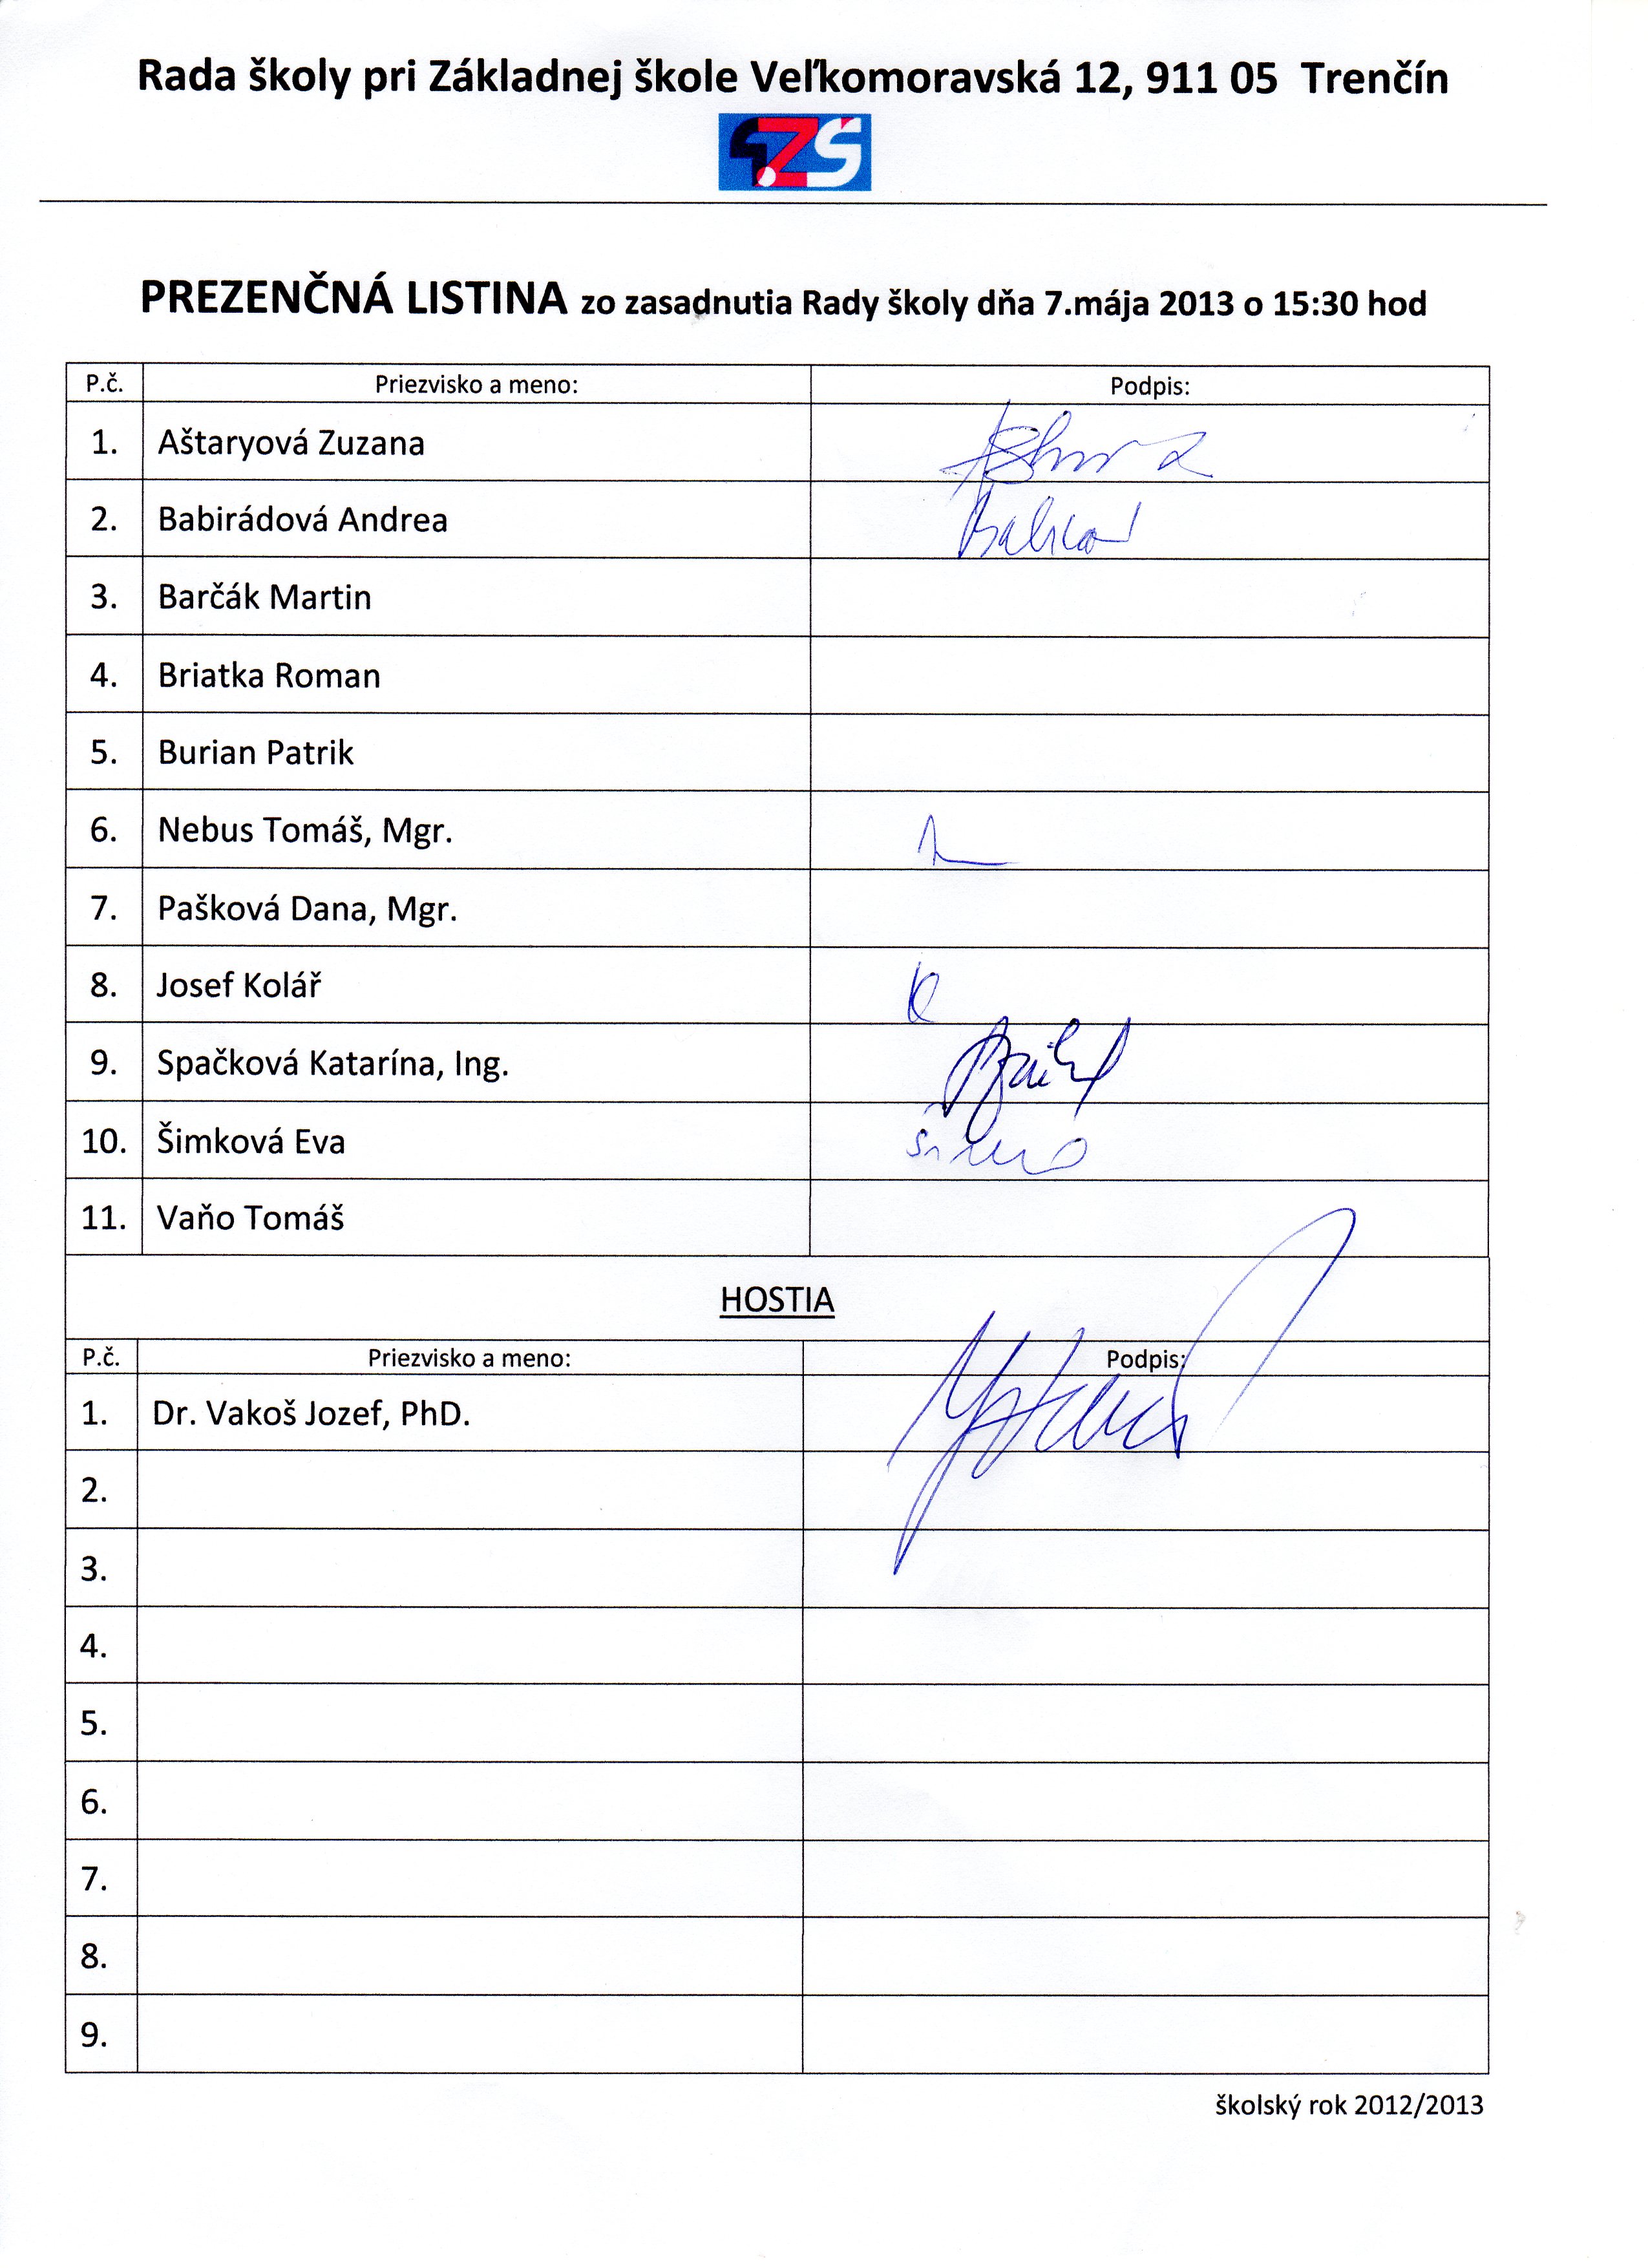 Rada školy pri Základnej škole Veľkomoravská 12, 911 05 Trenčín
ZŠ
PREZENČNÁ LISTINA zo zasadnutia Rady školy dňa 7.mája 2013 o 15:30 hod
P.č. Priezvisko a meno: Podpis:
1. Aštaryová Zuzana
2. Babirádová Andrea
3. Barčák Martin
4. Briatka Roman
5. Burian Patrik
6. Nebus Tomáš, Mgr.
7. Pašková Dana, Mgr.
8. Josef Kolář
9. Spačková Katarína, Ing.
10. Šimková Eva
11. Vaňo Tomáš
HOSTIA
P.č. Priezvisko a meno: Podpis:
1. Dr. Vakoš Jozef, PhD.
2.
3.
4.
5.
6.
7.
8.
9.
školský rok 2012/2013